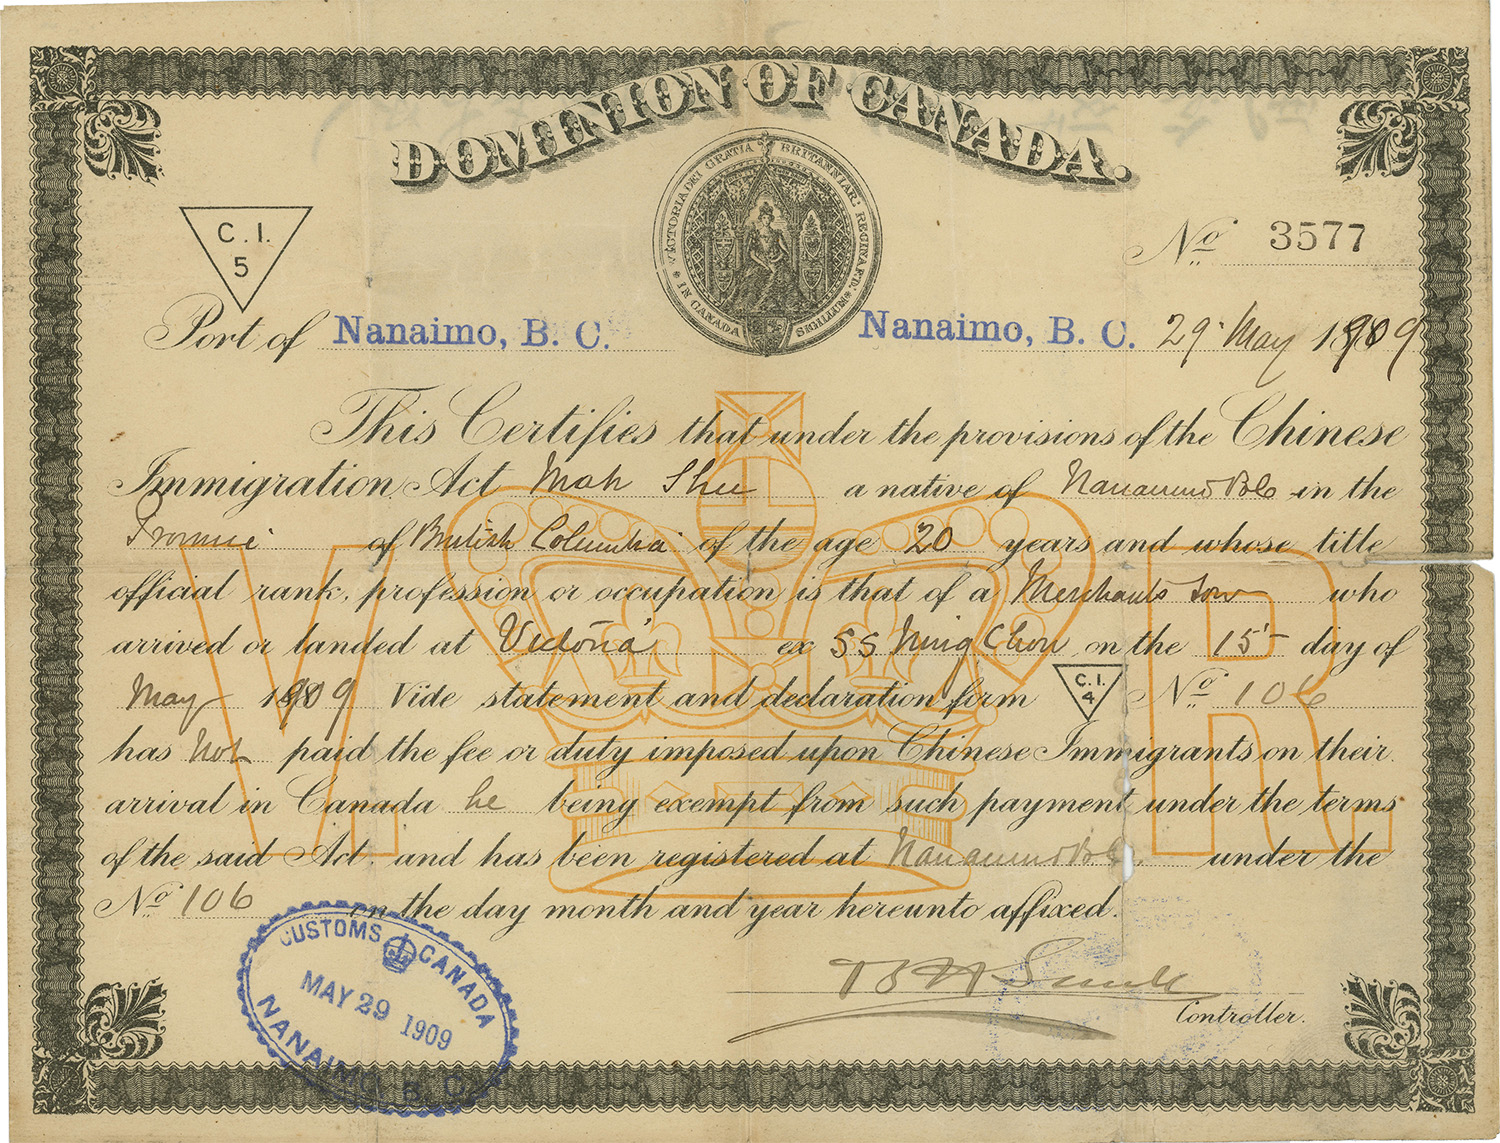 DOMINION OF CANADA.
VICTORIA DEI GRATIA BRITANNIAR: REGINA F.D.
IN CANADA SIGILLUM
C. I.
5
No 3577
Port of Nanaimo, B. C. Nanaimo, B. C. 29 May 1909
This Certifies that under the provisions of the Chinese
Immigration Act Mah Shu a native of Nanaimo BC in the
Province of British Columbia of the age 20 years and whose title
official rank, profession or occupation is that of a Merchants Son who
arrived or landed at Victoria ex SS Ning Chow on the 15 day of
May 1909 Vide statement and declaration form C.I. 4 No 106
has Not paid the fee or duty imposed upon Chinese Immigrants on their
arrival in Canada he being exempt from such payment under the terms
of the said Act. and has been registered at Nanaimo BC under the
No 106 on the day month and year hereunto affixed.
V R
CUSTOMS CANADA
MAY 29 1909
NANAIMO B. C.
Controller.